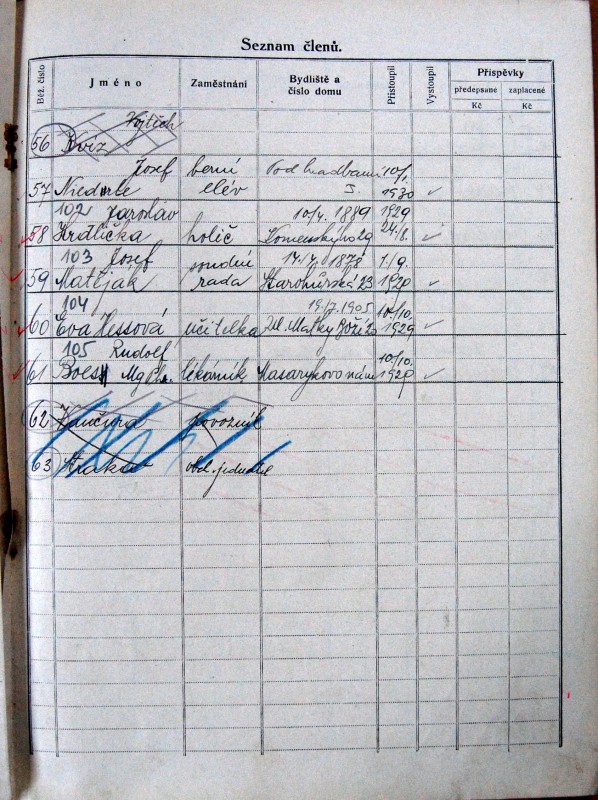 Seznam členů.
Běž. číslo Jméno Zaměstnání Bydliště a číslo domu Přistoupil Vystoupil Příspěvky
předepsané zaplacené
Kč Kč
Vojtěch
56
Josef berní Pod hradbami 10/1.
57 Niederle elév I. 1930 ✓
102 Jaroslav 10/4. 1889 1929
58 Hrdlička holič Komenského 29 24/8. ✓
103 Josef soudní 1878 1/9.
59 Matěják rada Starohorská 23 1920 ✓
104 19/7. 1905 10/10.
60 Eva Hessová učitelka Ul. Matky Boží 1929 ✓
105 Rudolf 10/10.
61 Mg Ph. lékárník Masarykovo nám 1929 ✓
62 Vančura povozník
63 obch. jednatel